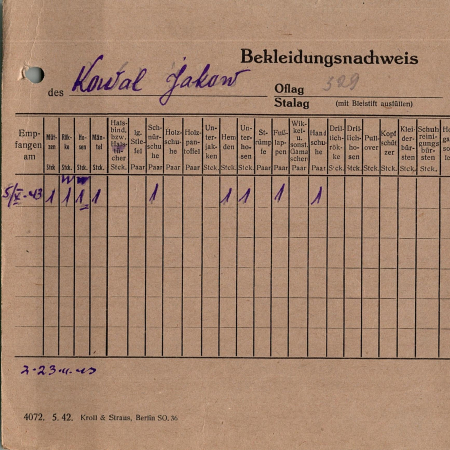 Bekleidungsnachweis
des Kowal Jakow Oflag 329
Stalag (mit Bleistift ausfüllen)
Emp-fangen am Müt-zen Stck. Rök-ke Stck. Ho-sen Stck. Män-tel Stck. Halsbind. bzw. Hals-tü-cher Stck. lg. Stie-fel Paar Sch-nür-schu-he Paar Holz-schu-he Paar Holz-pan-toffel Paar Un-ter-jak-ken Stck. Hem-den Stck. Un-ter-ho-sen Stck. St-rümp-fe Paar Fuß-lap-pen Paar Wik-kel- u. sonst. Gama-scher Paar Hand-schu-he Paar Dril-lich-rök-ke Stck. Dril-lich-ho-sen Stck. Pull-over Stck. Kopf schüt-zer Stck. Klei-der-bür-sten Stck. Schuh-reini-gungs-bür-sten Stck.
5/V.-43 1 1 1 1 1 1 1 1 1
4072. 5. 42. Kroll & Straus, Berlin SO. 36